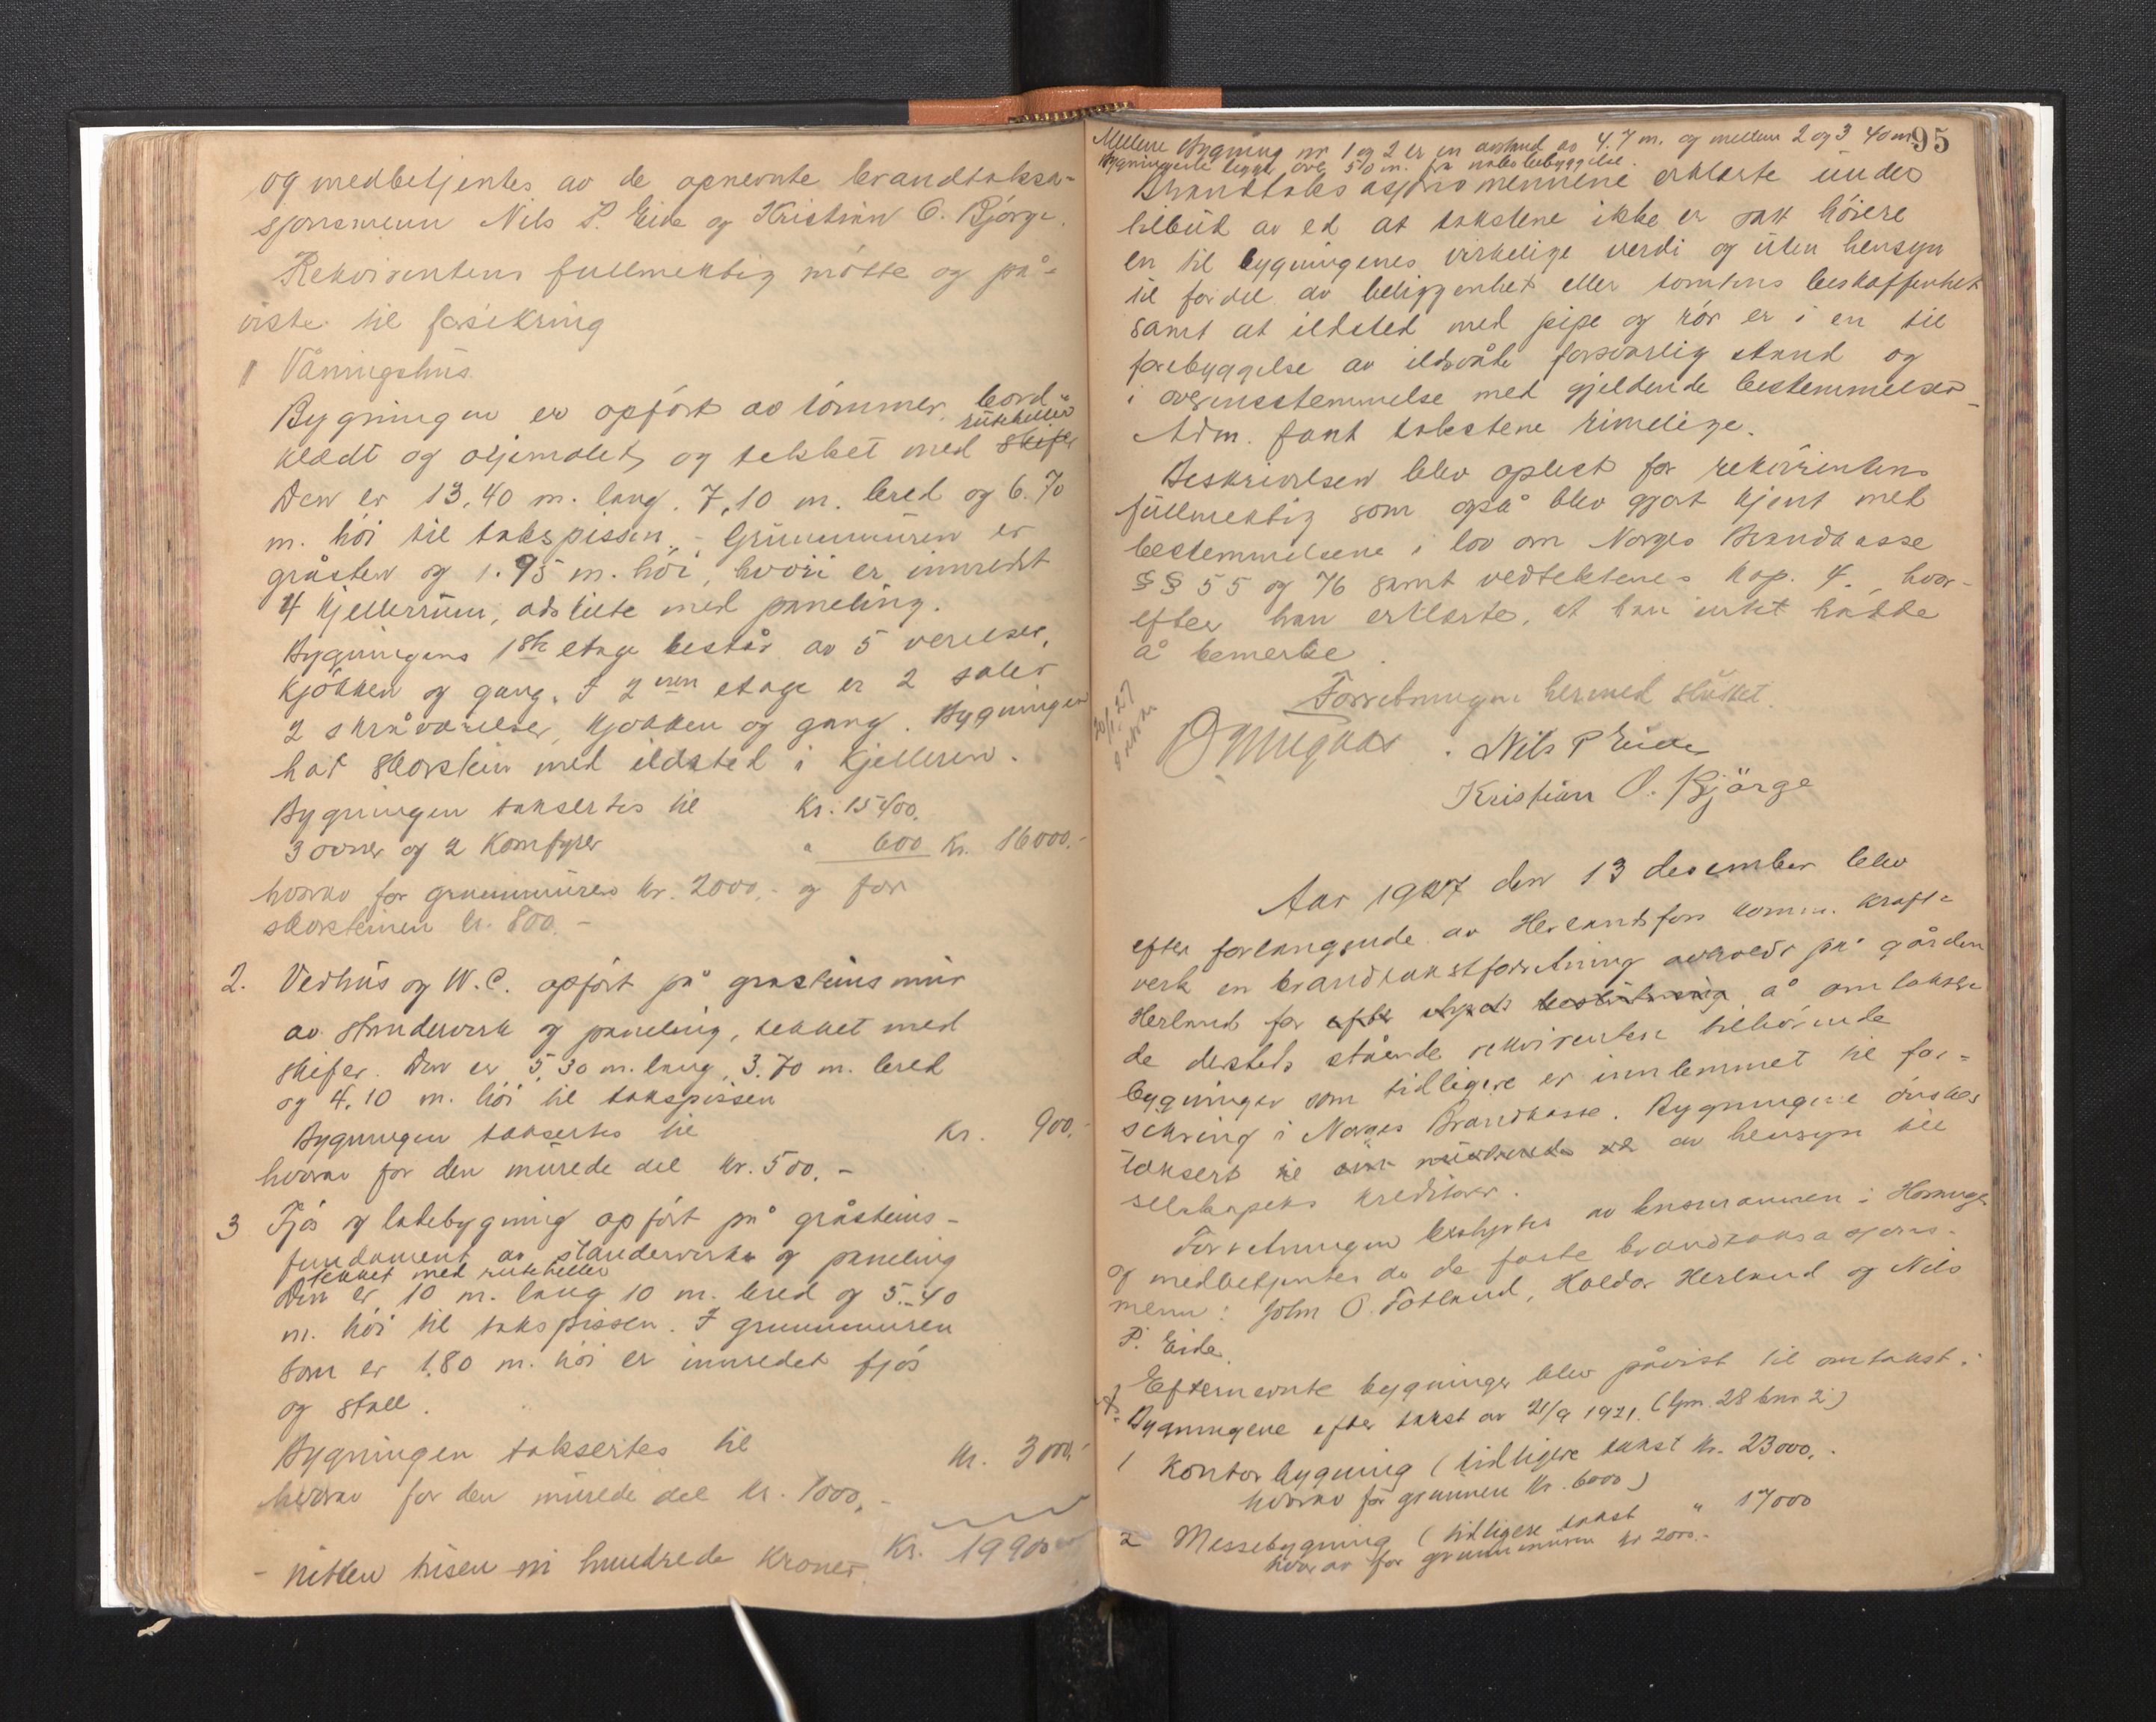 og medbetjentes av de opnevnte brandtaksa-
sjonsmenn Nils P. Eide og Kristian O. Bjørge.
Rekvirentens fullmektig møtte og på-
viste til forsikring
1 Våningshus.
Bygningen er opført av tømmer, bord-
klædt og oljemalet, og tekket med skifer ruteheller
Den er 13,40 m. lang, 7,10 m. bred og 6.70
m. høi til takspissen. - Grunnmuren er
gråsten og 1.95 m. høi, hvori er innredet
4 kjellerrum, adskilte med paneling.
Bygningens 1ste etage består av 5 verelser,
kjøkken og gang. I 2nen etage er 2 saler
2 skråværelser, kjøkken og gang. Bygningen
har skorstein med ildsted i kjelleren.
Bygningen taksertes til Kr. 15400.
3 ovner og 2 Komfyrer " 600 Kr. 16000.-
hvorav for grunnmuren kr. 2000.- og for
skorsteinen kr. 800.-
2. Vedhus og W.C. opført på grasteinsmur
av standerverk og paneling, tekket med
skifer. Den er 5,30 m. lang, 3.70 m. bred
og 4.10 m. høi til takspissen
Bygningen taksertes til Kr. 900.-
hvorav for den murede del kr. 500.-
3 Fjøs og ladebygning opført på gråsteins-
fundament av standerverk og paneling
tekket med ruteheller
Den er 10 m. lang 10 m. bred og 5.40
m. høi til takspissen. I grunnmuren
som er 1.80 m. høi er innredet fjøs
og stall.
Bygningen taksertes til Kr. 3000.-
hvorav for den murede del kr. 1000.-
Kr. 19900
- nitten tusen ni hundrede kroner
Mellem bygning nr 1 og 2 er en avstand av 4.7 m. og mellem 2 og 3 40 m 95
Bygningene ligger over 50 m. fra nabobebyggelse.
Brandtaksasjonsmennene erklærte under
tilbud av ed at takstene ikke er satt høiere
en til bygningenes virkelige verdi og uten hensyn
til fordel av beliggenhet eller tomtens beskaffenhet
samt at ildsted med pipe og rør er i en til
forebyggelse av ildsvåde forsvarlig stand og
i overensstemmelse med gjeldende bestemmelser_
Adm. fant takstene rimelige.
Beskrivelsen blev oplest for rekvirentens
fullmektig som også blev gjort kjent med
bestemmelsene i lov om Norges Brandkasse
§§ 55 og 76 samt vedtektenes kap. 4. hvor-
efter han erklærte, at han intet hadde
å bemerke.
Forretningen hermed sluttet.
Nils P Eide
Kristian O. Bjørge
Aar 1927 den 13 desember blev
efter forlangende av Herlandsfoss komm. kraft-
verk en brandtakstforretning avholdt på gården
Herland for å omtaksere
de destets stående rekvirenten tilhørende
bygninger som tidligere er innlemmet til for-
sikring i Norges Brandkasse. Bygningene ønskes
taksert av hensyn til
selskapets kreditorer.
Forretningen bestyrtes av lensmannen i Hosanger
og medbetjentes av de faste brandtaksasjons-
menn: John O. Totland, Haldor Herland og Nils
P. Eide.
Efternevnte bygninger blev påvist til omtakst:
Bygningene efter takst av 21/9 1921. (Gnr. 28 bnr 2)
1 Kontorbygning (tidligere takst kr. 23000.-
hvorav for grunnen kr. 6000)
2 Messebygning (tidligere takst " 17000
hvorav for grunnmuren kr 2000.-